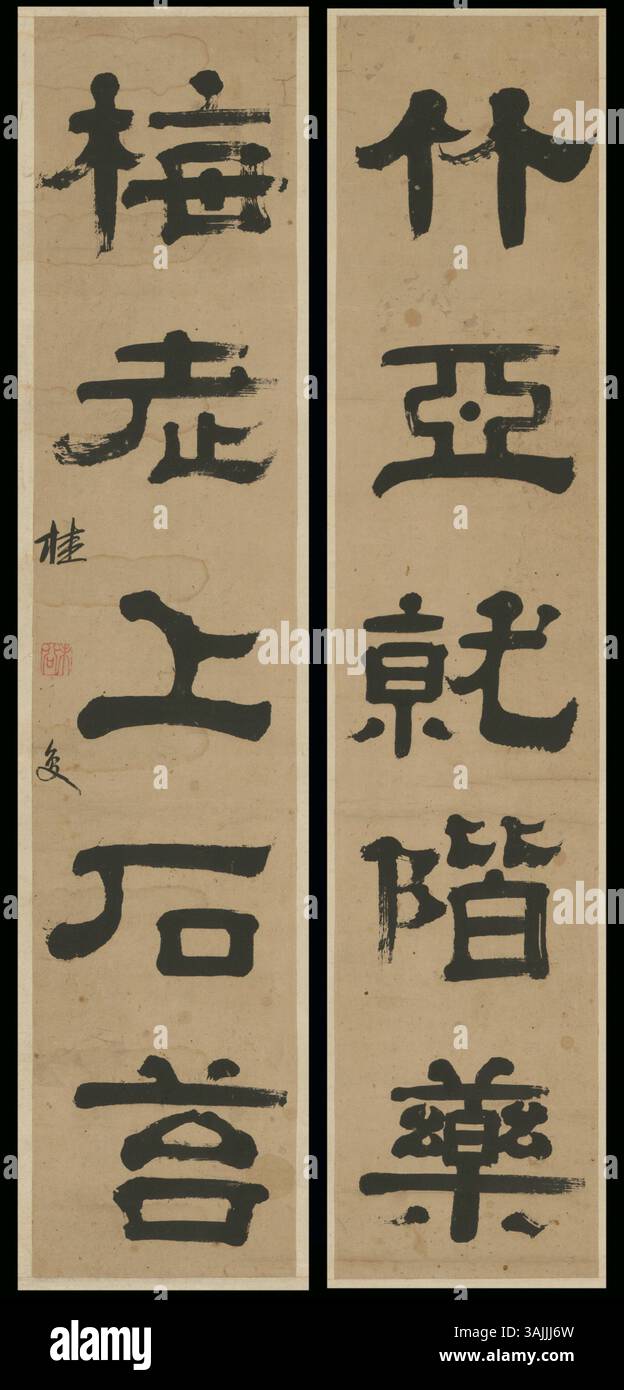 竹亞就階藥
梅老上石苔
桂
未谷
a alamy
Image ID: 3AJJJ6W
www.alamy.com